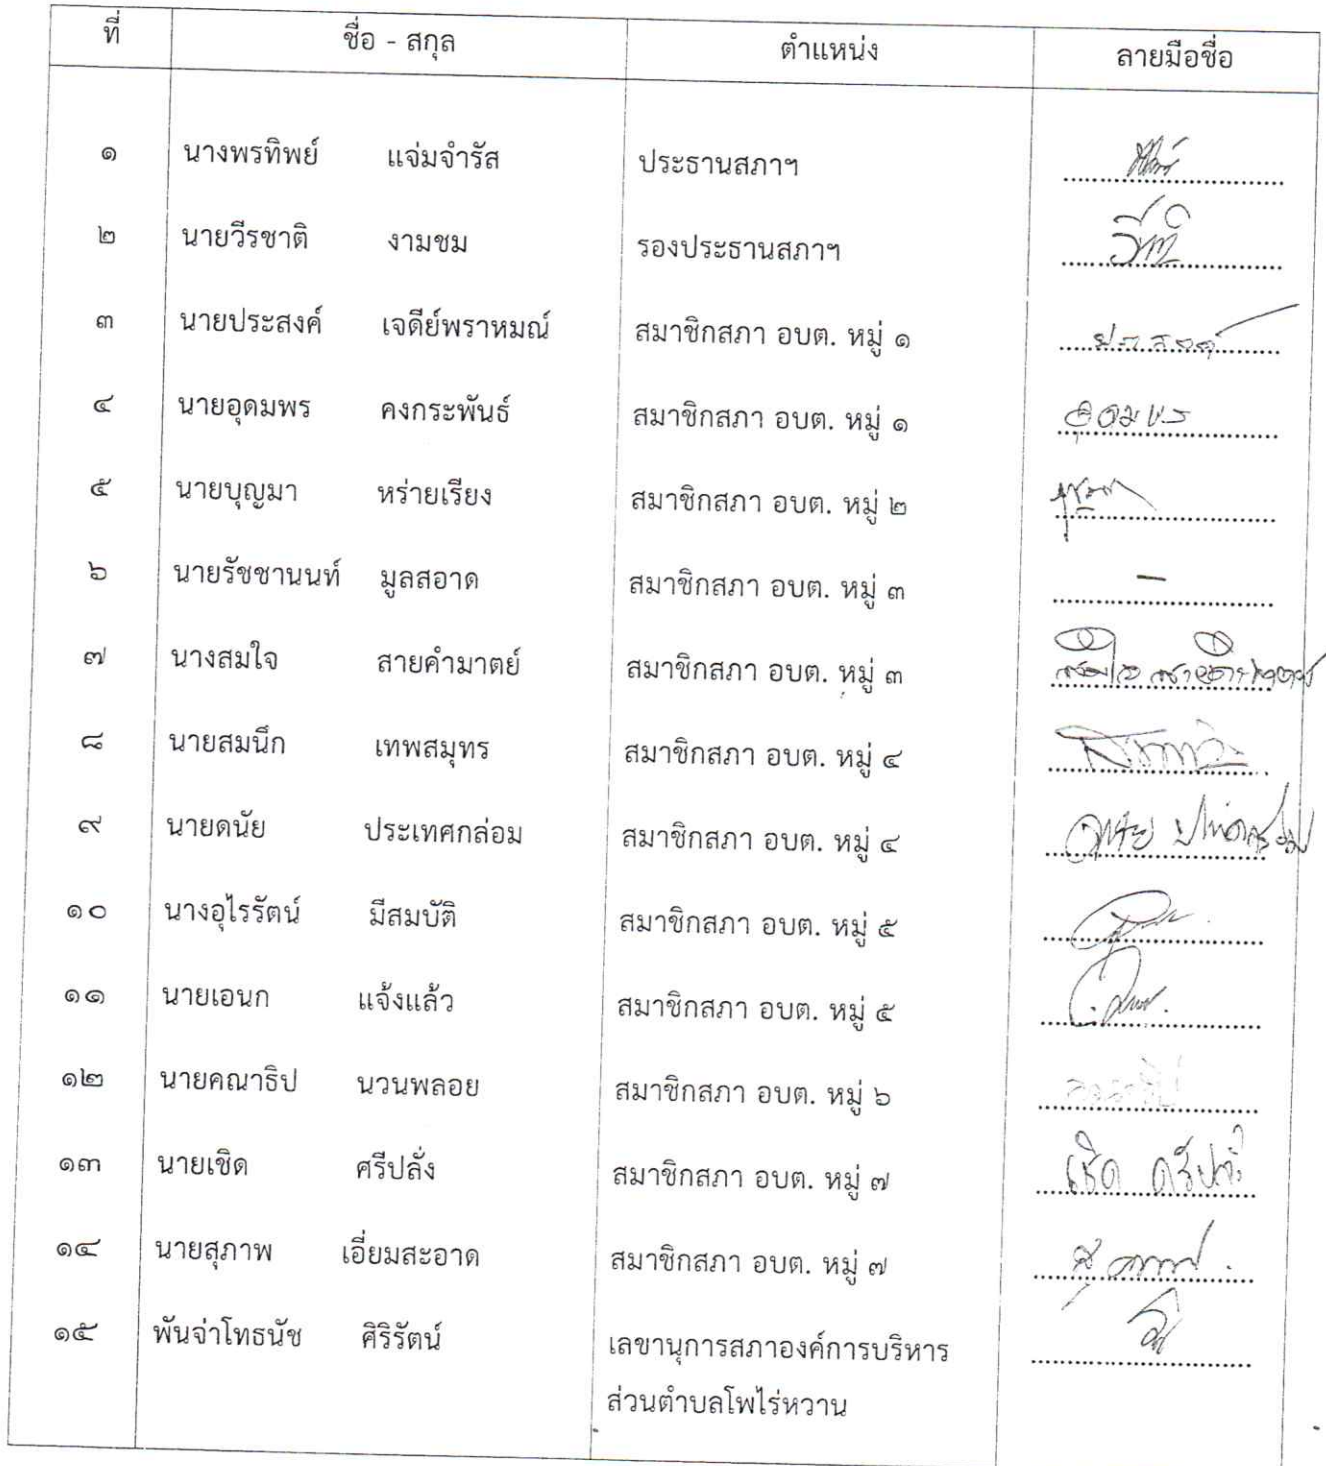 ที่ ชื่อ - สกุล ตำแหน่ง ลายมือชื่อ
๑ นางพรทิพย์ แจ่มจำรัส ประธานสภาฯ
๒ นายวีรชาติ งามชม รองประธานสภาฯ
๓ นายประสงค์ เจดีย์พราหมณ์ สมาชิกสภา อบต. หมู่ ๑ ประสงค์
๔ นายอุดมพร คงกระพันธ์ สมาชิกสภา อบต. หมู่ ๑ อุดมพร
๕ นายบุญมา หร่ายเรียง สมาชิกสภา อบต. หมู่ ๒
๖ นายรัชชานนท์ มูลสอาด สมาชิกสภา อบต. หมู่ ๓ -
๗ นางสมใจ สายคำมาตย์ สมาชิกสภา อบต. หมู่ ๓
๘ นายสมนึก เทพสมุทร สมาชิกสภา อบต. หมู่ ๔
๙ นายดนัย ประเทศกล่อม สมาชิกสภา อบต. หมู่ ๔
๑๐ นางอุไรรัตน์ มีสมบัติ สมาชิกสภา อบต. หมู่ ๕
๑๑ นายเอนก แจ้งแล้ว สมาชิกสภา อบต. หมู่ ๕
๑๒ นายคณาธิป นวนพลอย สมาชิกสภา อบต. หมู่ ๖
๑๓ นายเชิด ศรีปลั่ง สมาชิกสภา อบต. หมู่ ๗ เชิด ศรีปลั่ง
๑๔ นายสุภาพ เอี่ยมสะอาด สมาชิกสภา อบต. หมู่ ๗ สุภาพ
๑๕ พันจ่าโทธนัช ศิริรัตน์ เลขานุการสภาองค์การบริหาร
ส่วนตำบลโพไร่หวาน